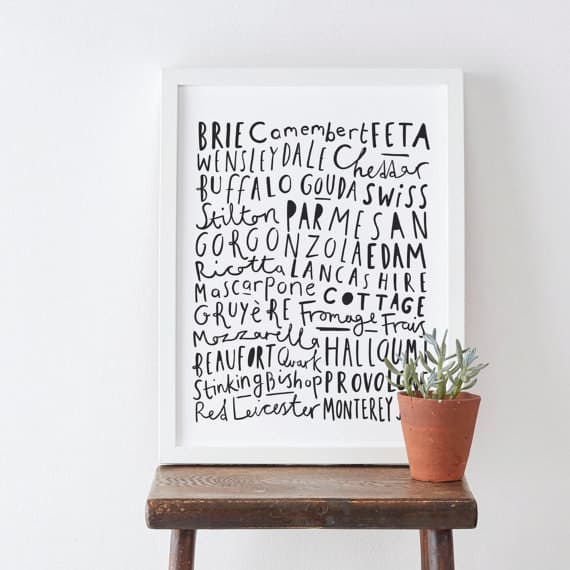 BRIE Camembert FETA
WENSLEYDALE Cheddar
BUFFALO GOUDA SWISS
Stilton PARMESAN
GORGONZOLA EDAM
Ricotta LANCASHIRE
Mascarpone COTTAGE
GRUYÈRE Fromage Frais
Mozzarella HALLOUMI
BEAUFORT Quark
Stinking Bishop PROVOLONE
Red Leicester MONTEREY J